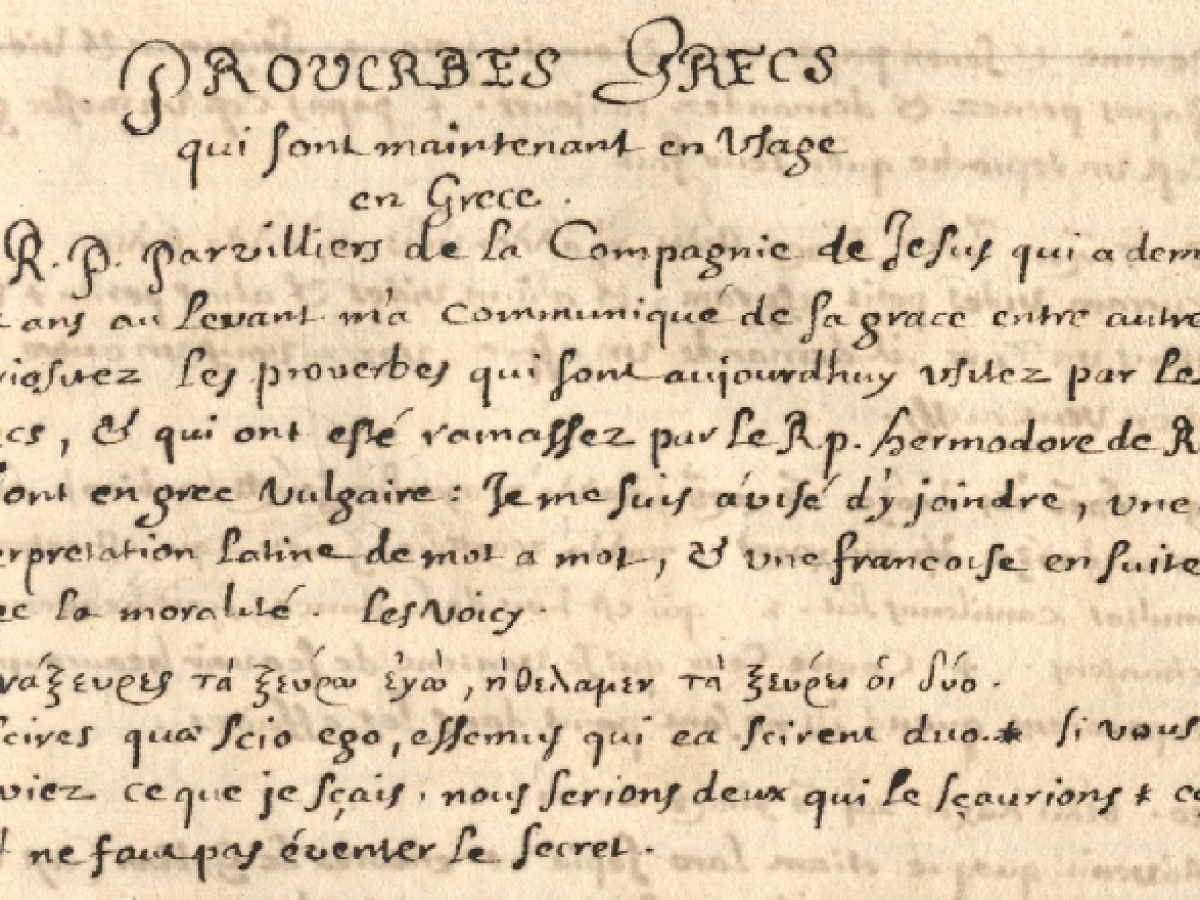 PROVERBES GRECS
qui sont maintenant en Vsage
en Grece.
R. P. Parvilliers de la Compagnie de Jesus qui a dem
ans au levant m'a communiqué de sa grace entre autre
riositez les proverbes qui sont aujourdhuy vsitez par les
ecs, & qui ont esté ramassez par le R p. hermodore de R
sont en grec vulgaire: Je me suis avisé d'y joindre, une
erpretation latine de mot a mot, & une francoise en suite
ec la moralité. Les voicy.
νάξευρες τὰ ξεύρω ἐγὼ, ἠθελαμεν τὰ ξεύρει οἱ δύο.
scires quæ scio ego, essemus qui ea scirent duo.* si vous
viez ce que je sçais, nous serions deux qui le sçaurions *
ne faut pas éventer le secret.